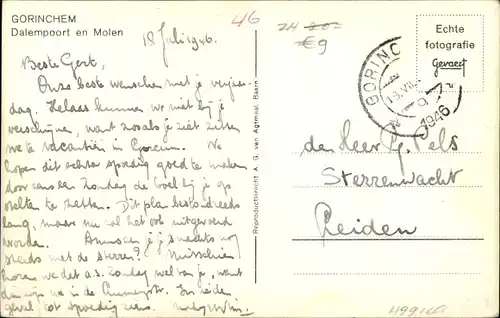 GORINCHEM
Dalempoort en Molen
46
ZH 20.-
€9
Echte
fotografie
Gevaert
18 Juli 1946.
GORINC
1946
Beste Gert,
Onze beste wenschen met je verjaar-
dag. Helaas kunnen we niet bij je
verschijnen, want zooals je ziet zitten
we te vacantiën in Gorcum. We
hopen dit echter spoedig goed te maken
door eens een Zondag de boel bij je op
stelten te zetten. Dit plan bestond reeds
lang, maar nu zal het ook uitgevoerd
worden. Amuseer je je 's nachts nog
steeds met de sterren? Misschien
hooren we det a.s. Zondag wel van je, want
dan zijn we in de
geval tot spoedig ziens.
den Heer G. Pels
Sterrenwacht
Leiden
Reproductierecht A. G. van Agtmaal, Baarn